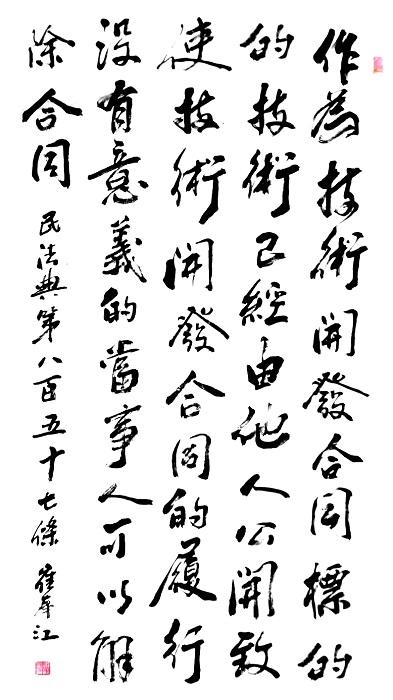 作為技術開發合同標的
的技術已經由他人公開致
使技術開發合同的履行
沒有意義的當事人可以解
除合同
民法典第八百五十七條